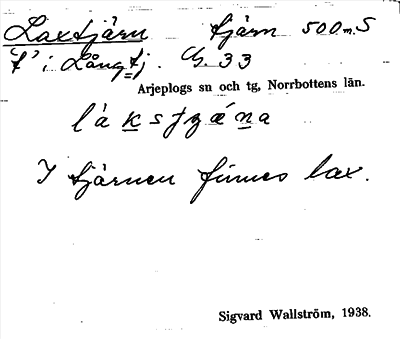 Laxtjärn tjärn 500 m. S
t' i Långtj. G. 33
Arjeplogs sn och tg, Norrbottens län.
I tjärnen finnes lax.
Sigvard Wallström, 1938.